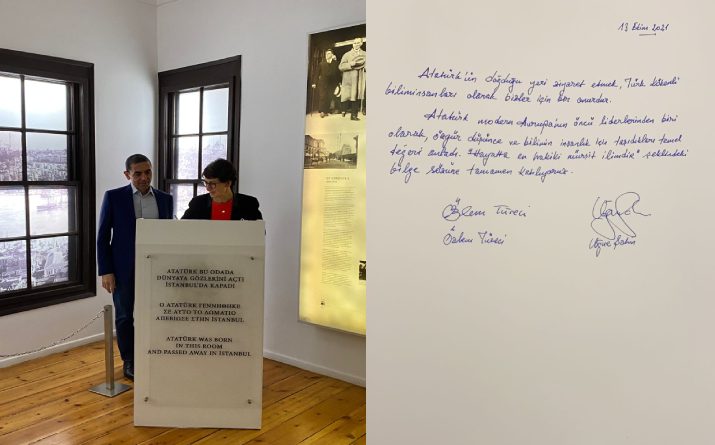 ATATÜRK BU ODADA
DÜNYAYA GÖZLERİNİ AÇTI
İSTANBUL'DA KAPADI
Ο ΑΤΑΤΟΥΡΚ ΓΕΝΝΗΘΗΚΕ
ΣΕ ΑΥΤΟ ΤΟ ΔΩΜΑΤΙΟ
ΑΠΕΒΙΩΣΕ ΣΤΗΝ ΙΣΤΑΝΒUL
ATATÜRK WAS BORN
IN THIS ROOM
AND PASSED AWAY IN ISTANBUL
13 Ekim 2021
Atatürk'ün doğduğu yeri ziyaret etmek, Türk kökenli
biliminsanları olarak bizler için bir onurdur.
Atatürk modern Avrupa'nın öncü liderlerinden biri
olarak, özgür düşünce ve bilimin insanlık için taşıdıkları temel
değeri anladı. "Hayatta en hakiki mürşit ilimdir" şeklindeki
bilge sözüne tamamen katılıyoruz.
Özlem Türeci
Özlem Türeci
Uğur Şahin